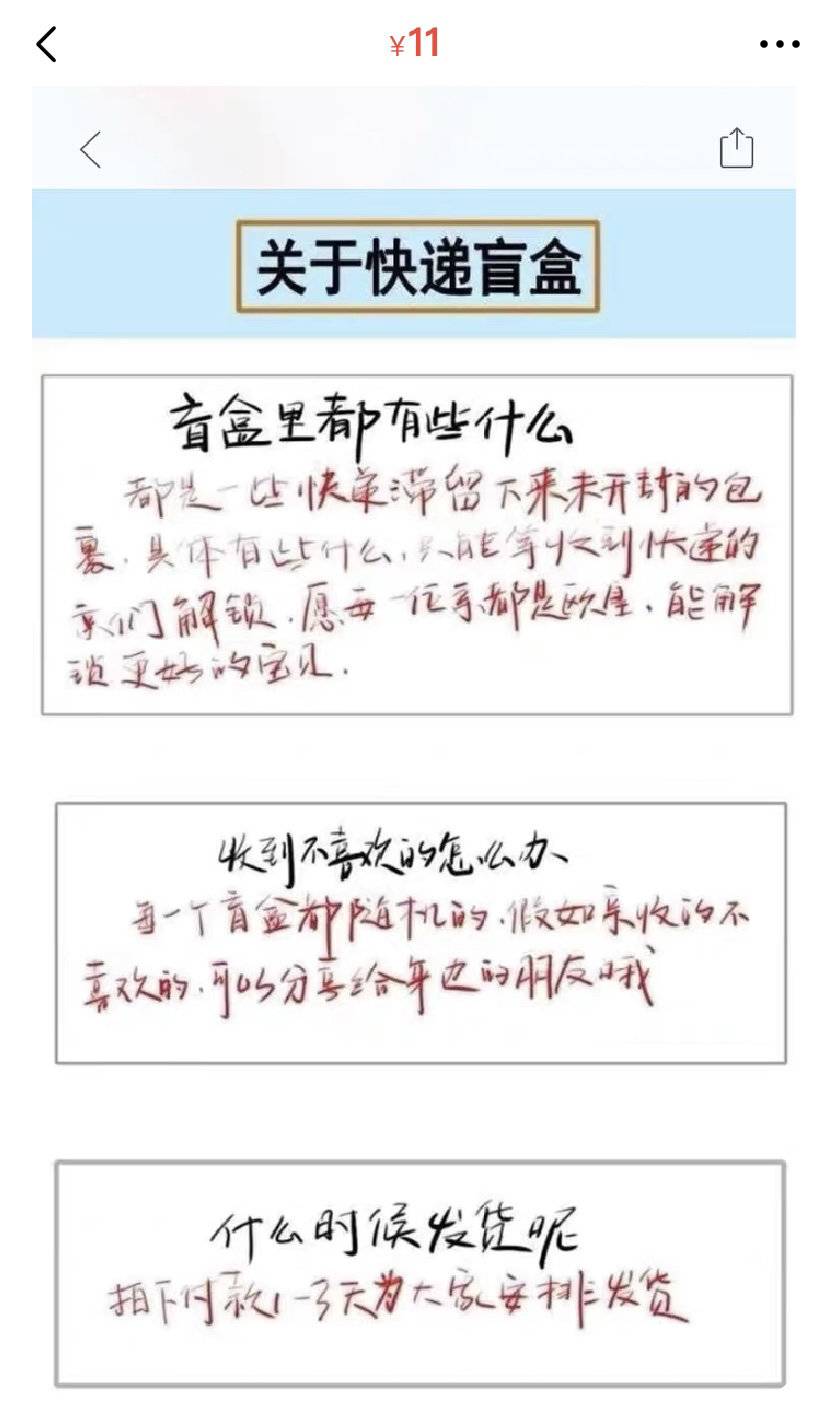 ¥11
关于快递盲盒
盲盒里都有些什么
都是一些快递滞留下来未开封的包
裹.具体有些什么,只能等收到快递的
亲们解锁.愿每一位亲都是欧皇、能解
锁更好的宝贝.
收到不喜欢的怎么办
每一个盲盒都随机的.假如亲收的不
喜欢的.可以分享给身边的朋友哦
什么时候发货呢
拍下付款1-3天为大家安排发货